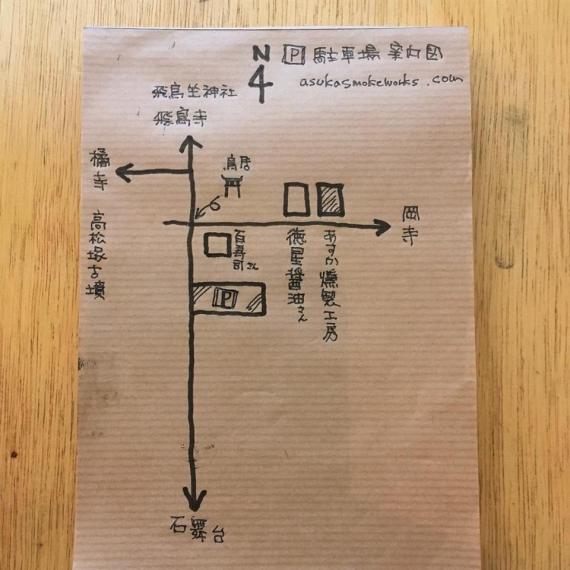 N P 駐車場案内図
asukasmokeworks.com
飛鳥坐神社
飛鳥寺
橘寺
高松塚古墳
鳥居
岡寺
百寿司さん
徳星醤油さん
あすか燻製工房
P
石舞台